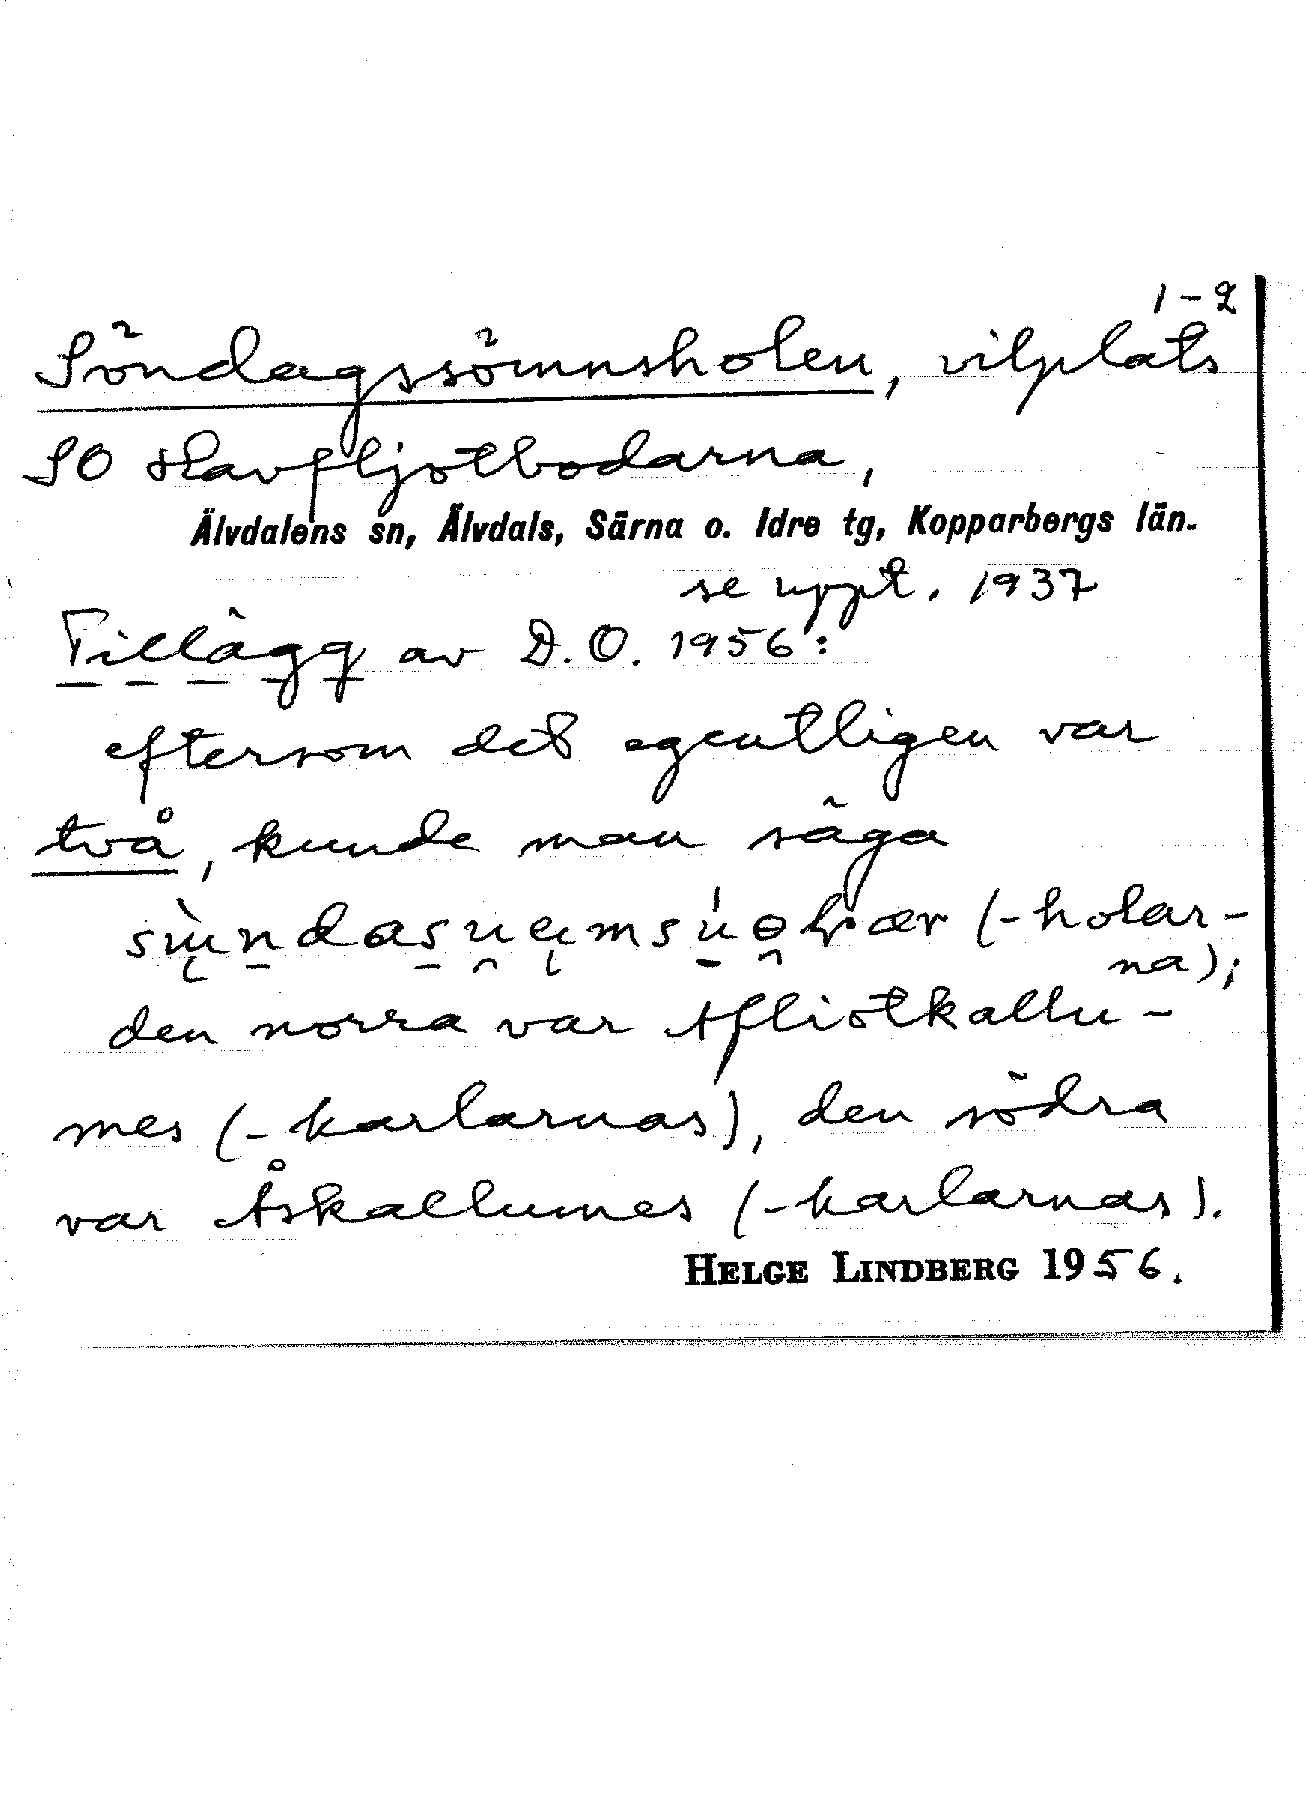 1-2
Söndagssömnsholen, vilplats
SO Havfljotbodarna,
Älvdalens sn, Älvdals, Särna o. Idre tg, Kopparbergs län.
se uppt. 1937
Tillägg av D.O. 1956:
eftersom det egentligen var
två, kunde man säga
(-holar-
na);
den norra var Afliotkallu-
mes (-karlarnas), den södra
var Åskallumes (-karlarnas).
HELGE LINDBERG 1956.